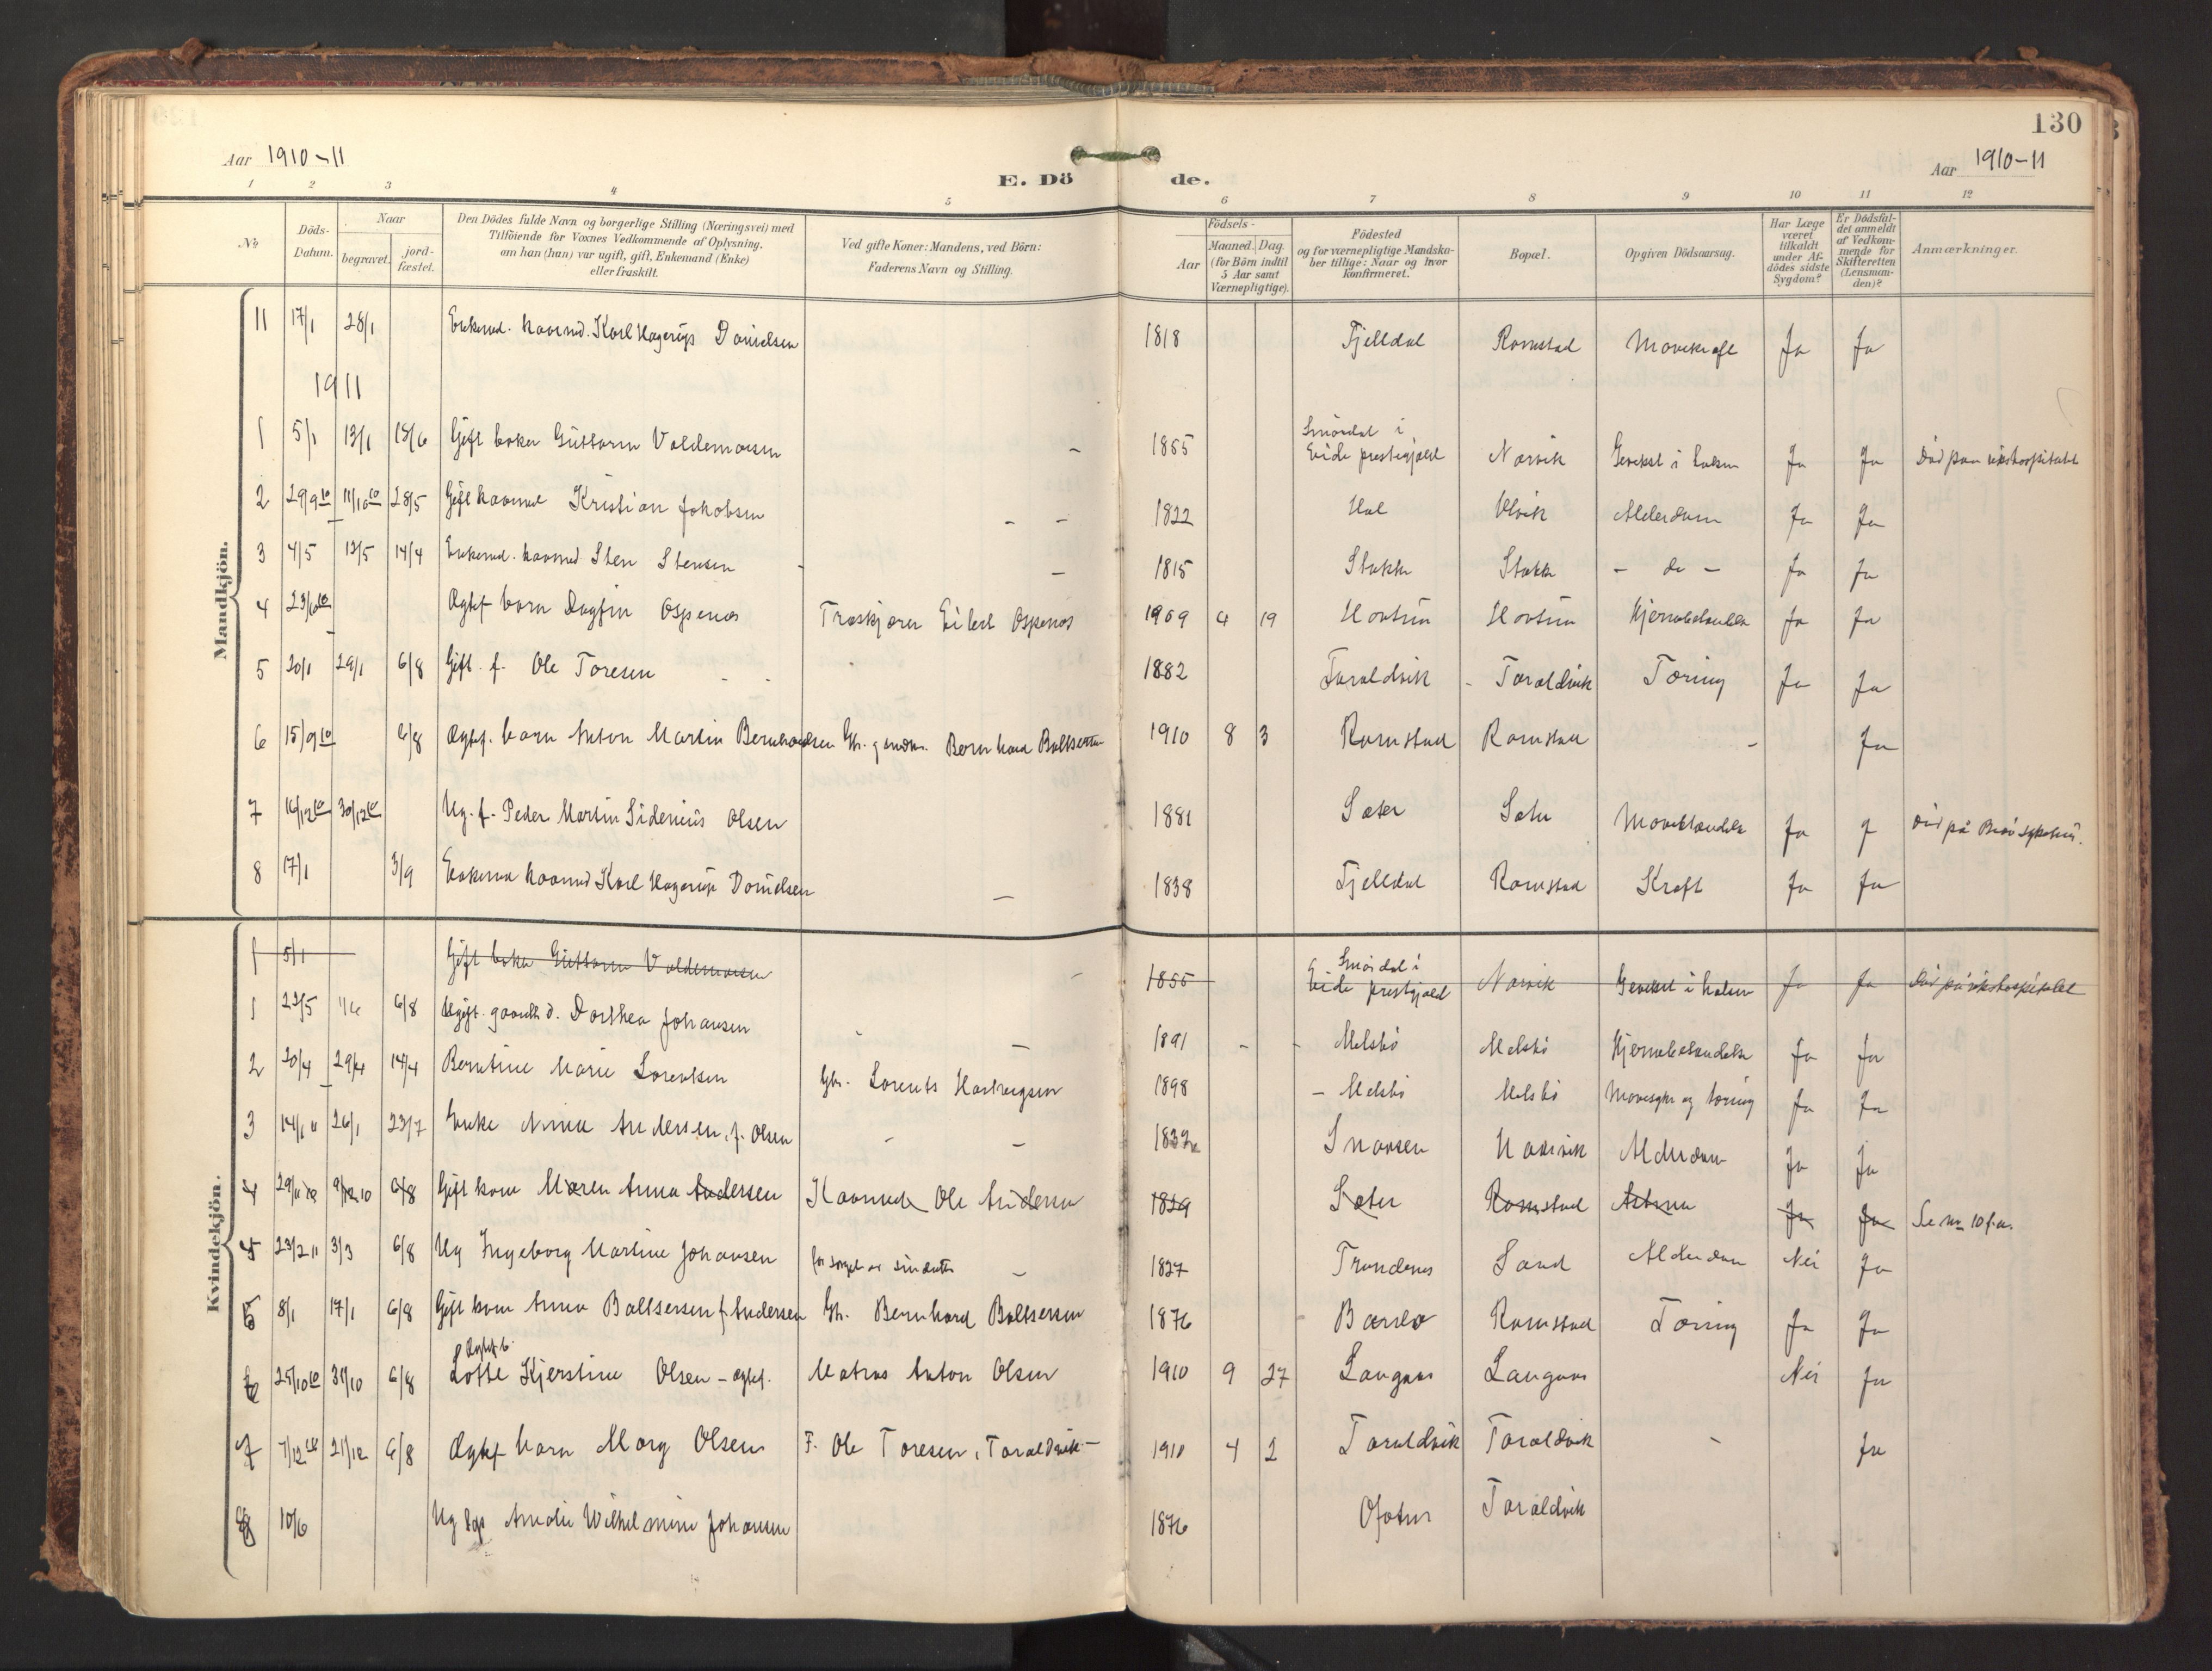 130
Aar 1910-11
E. Dö
de.
Aar 1910-11
1 2 3 4 5 6 7 8 9 10 11 12
№
Döds-Datum.
Naar
begravet.
jord-fæstet.
Den Dödes fulde Navn og borgerlige Stilling (Næringsvei) med
Tilföiende for Voxnes Vedkommende af Oplysning.
om han (hun) var ugift, gift, Enkemand (Enke)
eller fraskilt.
Ved gifte Koner: Mandens, ved Börn:
Faderens Navn og Stilling.
Födsels-
Aar
Maaned. Dag.
(for Börn indtil
5 Aar samt
Værnepligtige).
Födested
og for værnepligtige Mandska-
ber tillige: Naar og hvor
konfirmeret.
Bopæl.
Opgiven Dödsaarsag.
Har Læge
været
tilkaldt
under Af-
dödes sidste
Sygdom?
Er Dödsfal-
det anmeldt
af Vedkom-
mende for
Skifteretten
(Lensman-
den)?
Anmærkninger.
Mandkjön.
11 17/1 28/1 Enkemd. kaarmd. Karl Hagerup Danielsen 1818 Fjelldal Ramstad Mavekraft Ja Ja
1911
1 5/1 13/1 18/6 Gift baker Guttorm Valdemarsen - 1855 Smördal i
Eide prestegjeld Narvik Ja Ja Död paa rikshospitalet
2 29/9 10 11/10 10 28/5 Gift kaarmd Kristian Jakobsen - - 1822 Hol Ulvik Alderdom Ja Ja
3 4/5 13/5 14/4 Enkemd. kaarmd Sten Stensen - 1815 Stokke Stokke - do - Ja Ja
4 Ægtef barn Dagfin Ospenes Eilert Ospenes 1909 4 19 Hovtun Hovtun Hjernebetændelse Ja Ja
5 20/1 29/1 6/8 Gift. f. Ole Toresen 1882 Taraldvik Taraldvik Tæring Ja Ja
6 15/9 10 6/8 Ægtef. barn Anton Martin Bernhardsen Bernhard Baltsersen 1910 8 3 Ramstad Ramstad - Ja
7 16/12 10 30/12 10 Ug. f. Peder Martin Sidenius Olsen 1881 Sæter Sæter Ja J Död på Bodö sykehus.
8 17/1 3/9 Enkemd kaarmd Karl Hagerup Danielsen - 1838 Fjelldal Ramstad Kreft Ja Ja
Kvindekjön.
1 5/1 Gift baker Guttorm Valdemarsen 1855 Smördal i
Eide prestgjeld Narvik Ja Ja Död på rikshospitalet
1 22/5 1/6 6/8 Ugift. Dorthea Johansen - 1891 - - Melsbö Melsbö Hjernebetændelse Ja Ja
2 20/4 29/4 14/4 Berntine Marie Lorentsen Gbr. Lorents Hartvigsen 1898 - Melsbö Melsbö Mavesyke og tæring Ja Ja
3 14/1 11 26/1 23/7 Enke Andersen, f. Olsen - - 1832 Haarvik Alderdom Ja Ja
4 29/11 10 6/8 Gift kone Maren Anna Andersen Kaarmd Ole Andersen 1829 Sæter Ramstad Astma Ja Ja Se no 10 f.a.
4 23/2 11 3/3 6/8 Ug Ingeborg Martine Johansen - 1827 Trondenes Sand Alderdom Nei Ja
5 8/1 17/1 6/8 Gift kone Anna Baltsersen f. Andersen Gb. Bernhard Baltsersen 1876 Ramstad Tæring Ja Ja
6 31/10 6/8 Ægtef b.
Lotte Kjerstine Olsen - ægtef. Matros Anton Olsen 1910 9 27 Langnes Langnes Nei Ja
7 7/12 10 21/12 6/8 Ægtef barn Olsen F. Ole Toresen, Taraldvik - 1910 4 2 Taraldvik Taraldvik - Ja
8 10/6 Ug Amalie Wilhelmine Johansen 1876 Ofoten Taraldvik